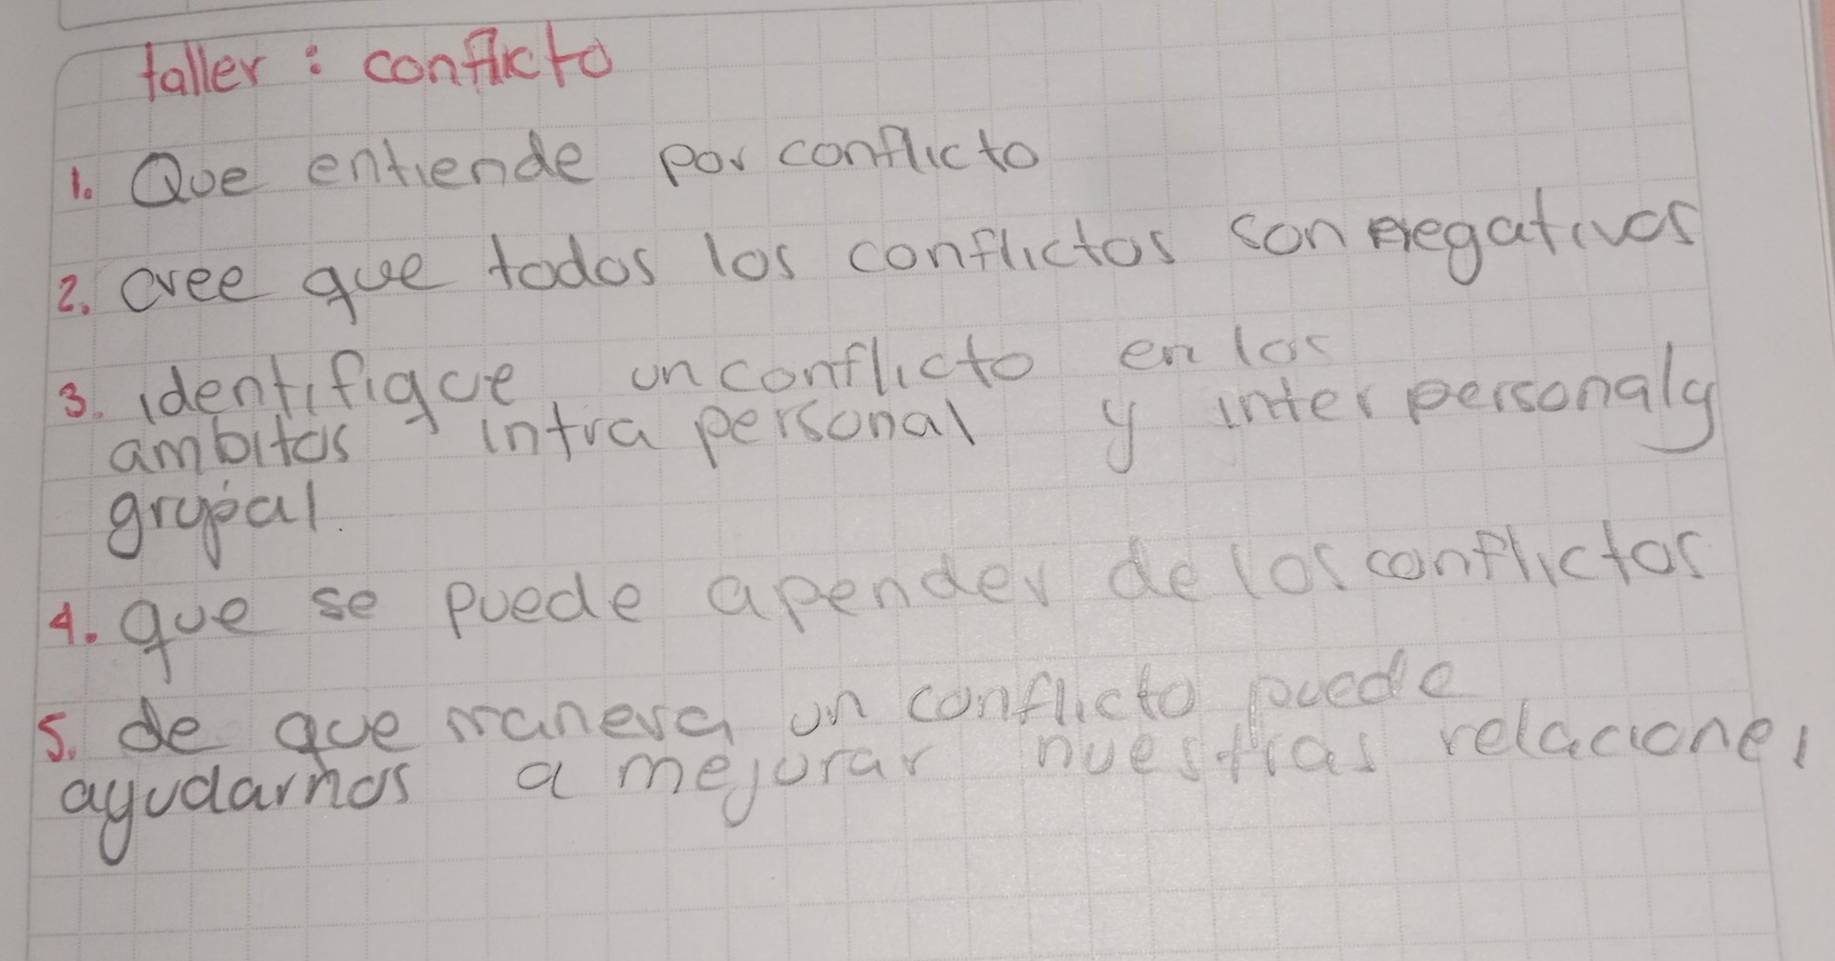 taller : conflicto
1. Que entiende por conflicto
2. cree que todos los conflictos son negativos
3. identifique un conflicto en los
ambitos intra personal y inter personal y
grupal.
4. que se puede apender de los conflictos
5. de que manera un conflicto puede
ayudarnos a mejorar nuestras relaciones